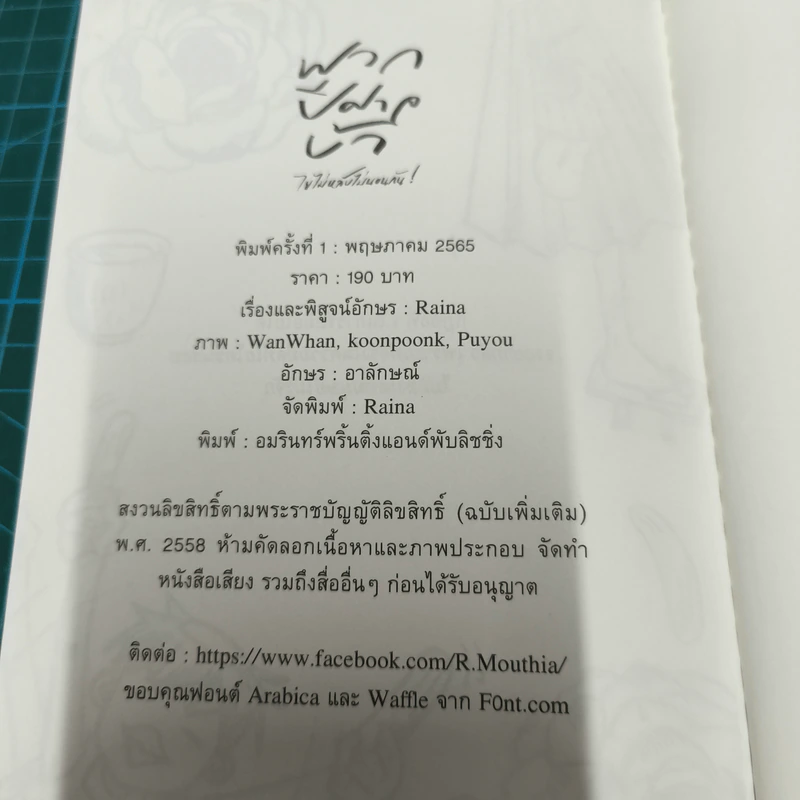 พิมพ์ครั้งที่ 1 : พฤษภาคม 2565
ราคา : 190 บาท
เรื่องและพิสูจน์อักษร : Raina
ภาพ : WanWhan, koonpoonk, Puyou
อักษร : อาลักษณ์
จัดพิมพ์ : Raina
พิมพ์ : อมรินทร์พริ้นติ้งแอนด์พับลิชชิ่ง
สงวนลิขสิทธิ์ตามพระราชบัญญัติลิขสิทธิ์ (ฉบับเพิ่มเติม)
พ.ศ. 2558 ห้ามคัดลอกเนื้อหาและภาพประกอบ จัดทำ
หนังสือเสียง รวมถึงสื่ออื่นๆ ก่อนได้รับอนุญาต
ติดต่อ : https://www.facebook.com/R.Mouthia/
ขอบคุณฟอนต์ Arabica และ Waffle จาก F0nt.com